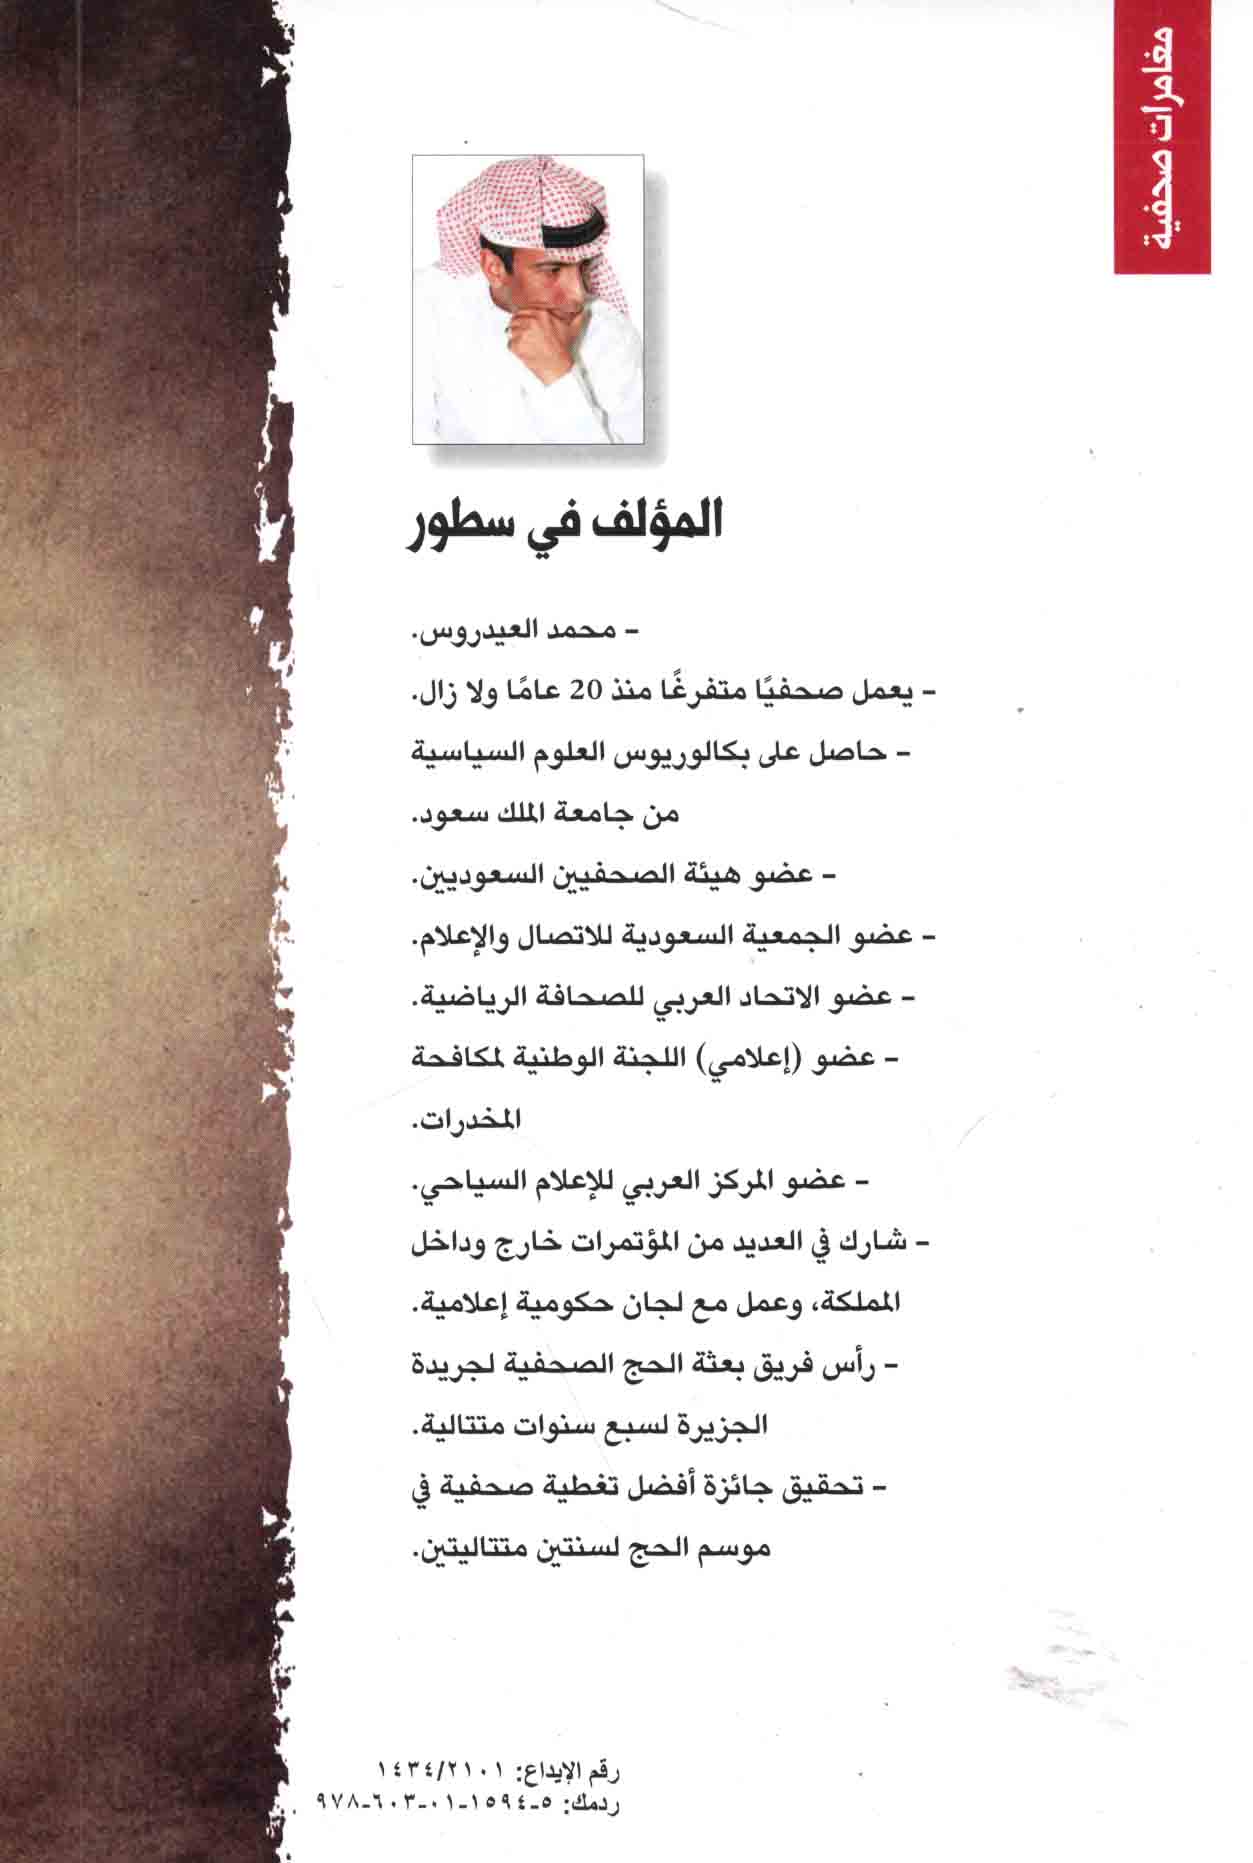 مغامرات صحفية
المؤلف في سطور
- محمد العيدروس.
- يعمل صحفيًا متفرغًا منذ 20 عامًا ولا زال.
- حاصل على بكالوريوس العلوم السياسية
من جامعة الملك سعود.
- عضو هيئة الصحفيين السعوديين.
- عضو الجمعية السعودية للاتصال والإعلام.
- عضو الاتحاد العربي للصحافة الرياضية.
- عضو (إعلامي) اللجنة الوطنية لمكافحة
المخدرات.
- عضو المركز العربي للإعلام السياحي.
- شارك في العديد من المؤتمرات خارج وداخل
المملكة، وعمل مع لجان حكومية إعلامية.
- رأس فريق بعثة الحج الصحفية لجريدة
الجزيرة لسبع سنوات متتالية.
- تحقيق جائزة أفضل تغطية صحفية في
موسم الحج لسنتين متتاليتين.
رقم الإيداع: ١٤٣٤/٢١٠١
ردمك: ٥-١٥٩٤-٠١-٦٠٣-٩٧٨